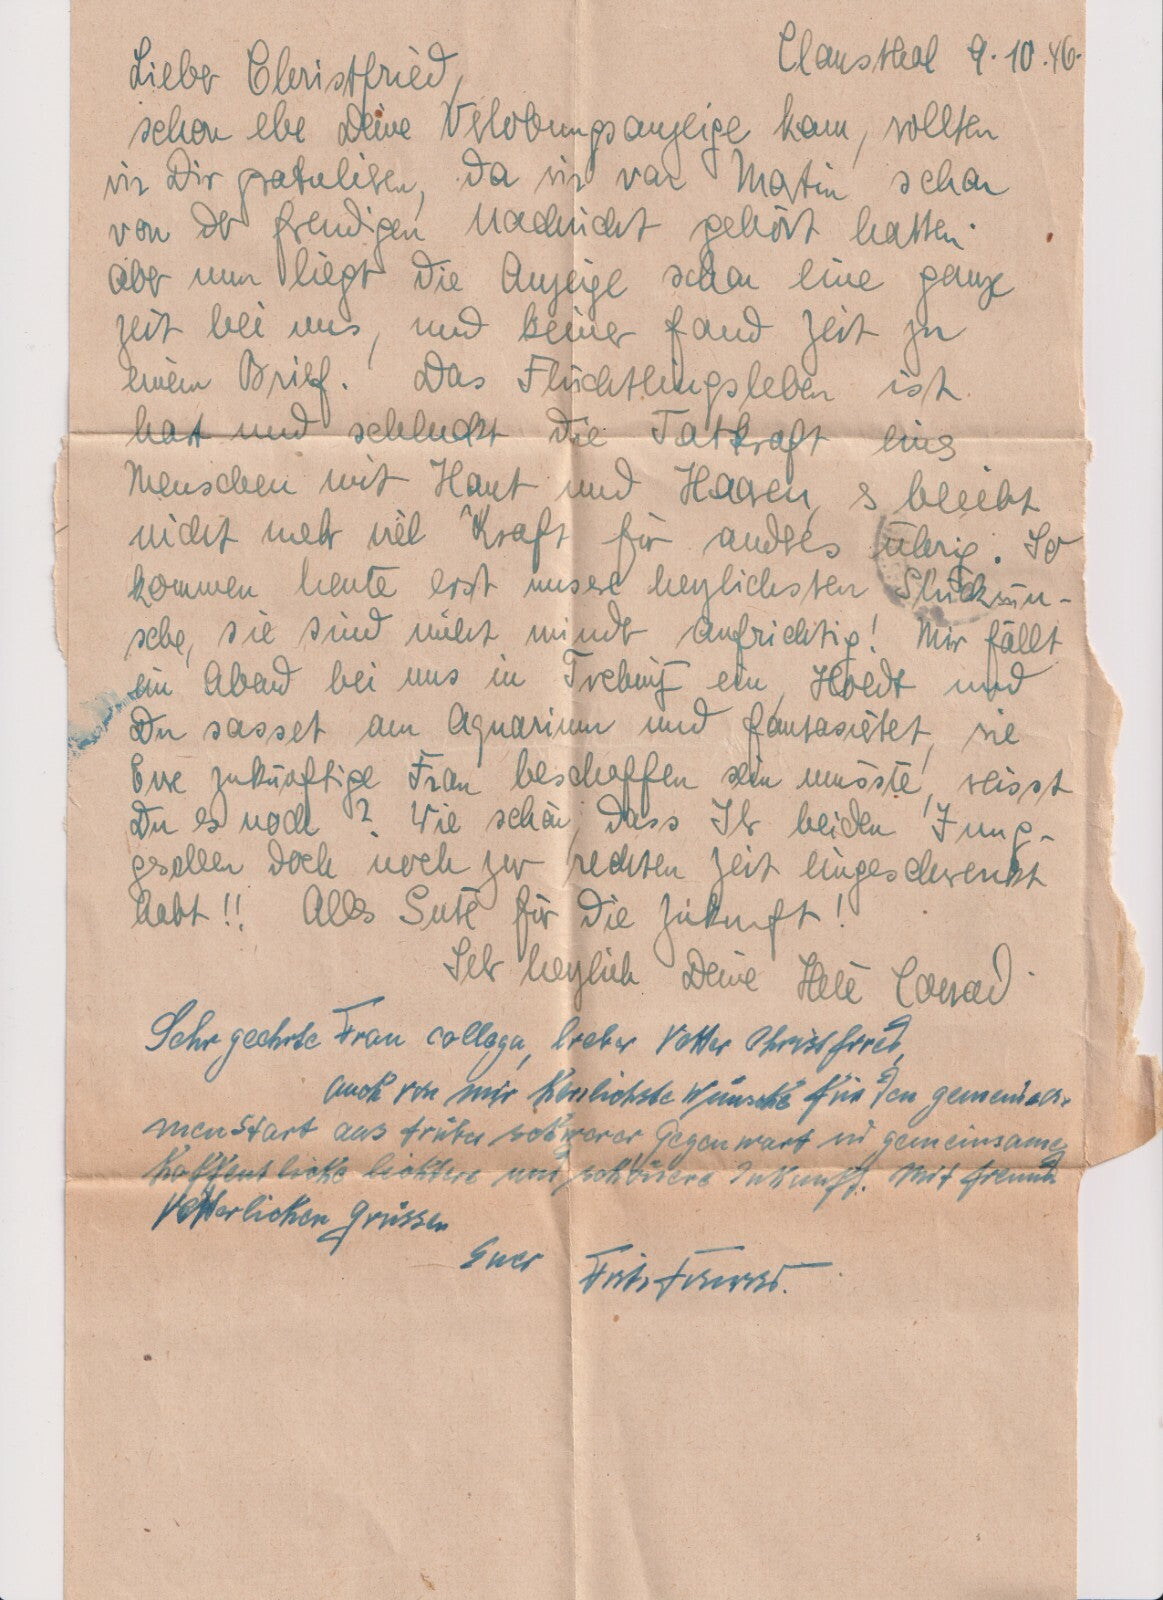 Clausthal 9.10.46.
Lieber Christfried,
schon ehe Deine Verlobungsanzeige kam, wollten
wir Dir gratulieren, da wir von Martin schon
von der freudigen Nachricht gehört hatten.
Aber nun liegt die Anzeige schon eine ganze
Zeit bei uns, und keiner fand Zeit zu
einem Brief. Das Flüchtlingsleben ist
hart und schluckt die Tatkraft eines
Menschen mit Haut und Haaren, es bleibt
nicht mehr viel Kraft für andres übrig. So
kommen heute erst unsere herzlichsten Glückwün-
sche, sie sind nicht minder aufrichtig! Mir fällt
ein Abend bei uns in Trebnitz ein, Hoedt und
Du sasset am Aquarium und fantasiertet, wie
Eure zukünftige Frau beschaffen sein müsste, weisst
Du es noch? Wie schön, dass Ihr beiden Jung-
gesellen doch noch zur rechten Zeit eingeschwenkt
habt!! Alles Gute für die Zukunft!
Sehr herzlich Deine Hete Conrad
Sehr geehrte Frau collega, lieber Vetter Christfried,
auch von mir herzlichste Wünsche für den gemeinsa-
men Start aus trüber schwerer Gegenwart in gemeinsame
hoffentliche lichtere und schönere Zukunft. Mit freund
vetterlichen Grüssen
Euer Fritz